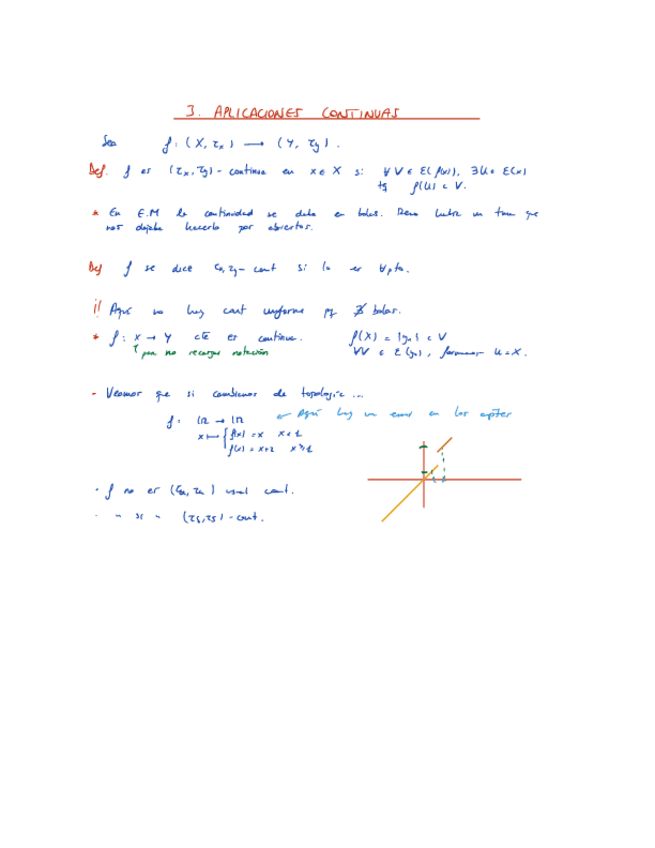 3. APLICACIONES CONTINUAS
Sea f: (X, τx) → (Y, τy).
Def. f es (τx, τy)-continua en x ∈ X si ∀V ∈ E(f(x)), ∃U ∈ E(x)
tq f(U) ⊂ V.
* En E.M la continuidad se daba en bolas. Pero hubo un tma que
nos dejaba hacerlo por abiertos.
Def f se dice τx, τy-cont si lo es ∀pto.
¡! Aquí no hay cont uniforme pq ∄ bolas.
* f: X → Y cte es continua. f(X) = {y₀} ⊂ V
↑ para no recargar notación ∀V ∈ E(y₀), U = X.
- Veamos que si cambiamos de topología ...
f: ℝ → ℝ ← Aquí hay un error en los aptes
x ↦ { f(x) = x x < 1
f(x) = x+2 x ≥ 1
· f no es (τu, τu) usual cont.
· " si " (τs, τs)-cont.